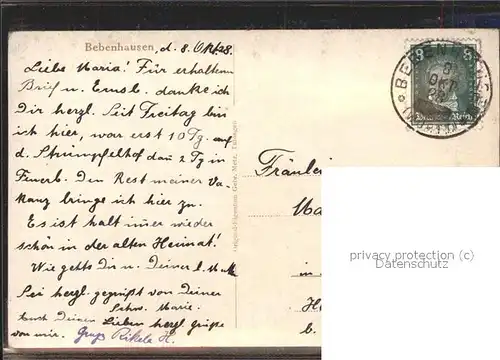 Bebenhausen, d. 8. Okt. 28.
Liebe Maria! Für erhaltenen
Brief u. Einsl. danke ich
Dir herzl. Seit Freitag bin
ich hier, war erst 10 Tg. auf
d. Strümpfelhof dan 2 Tg in
Feuerb. Den Rest meiner Va-
kanz bringe ich hier zu.
Es ist halt im̄er wieder
schön in der alten Heimat!
Wie gehts Dir u. Deiner l.
Sei herzl. gegrüßt von Deiner
Schw. Marie.
Auch Deinen Lieben herzl. Grüße
von mir. Gruß Rikele H.
Original-Eigentum Gebr. Metz, Tübingen
BEBENHAUSEN
OKT
28
8 8
Deutsches Reich
Fräulein
Ma
in
H
b.
privacy protection (c)
Datenschutz